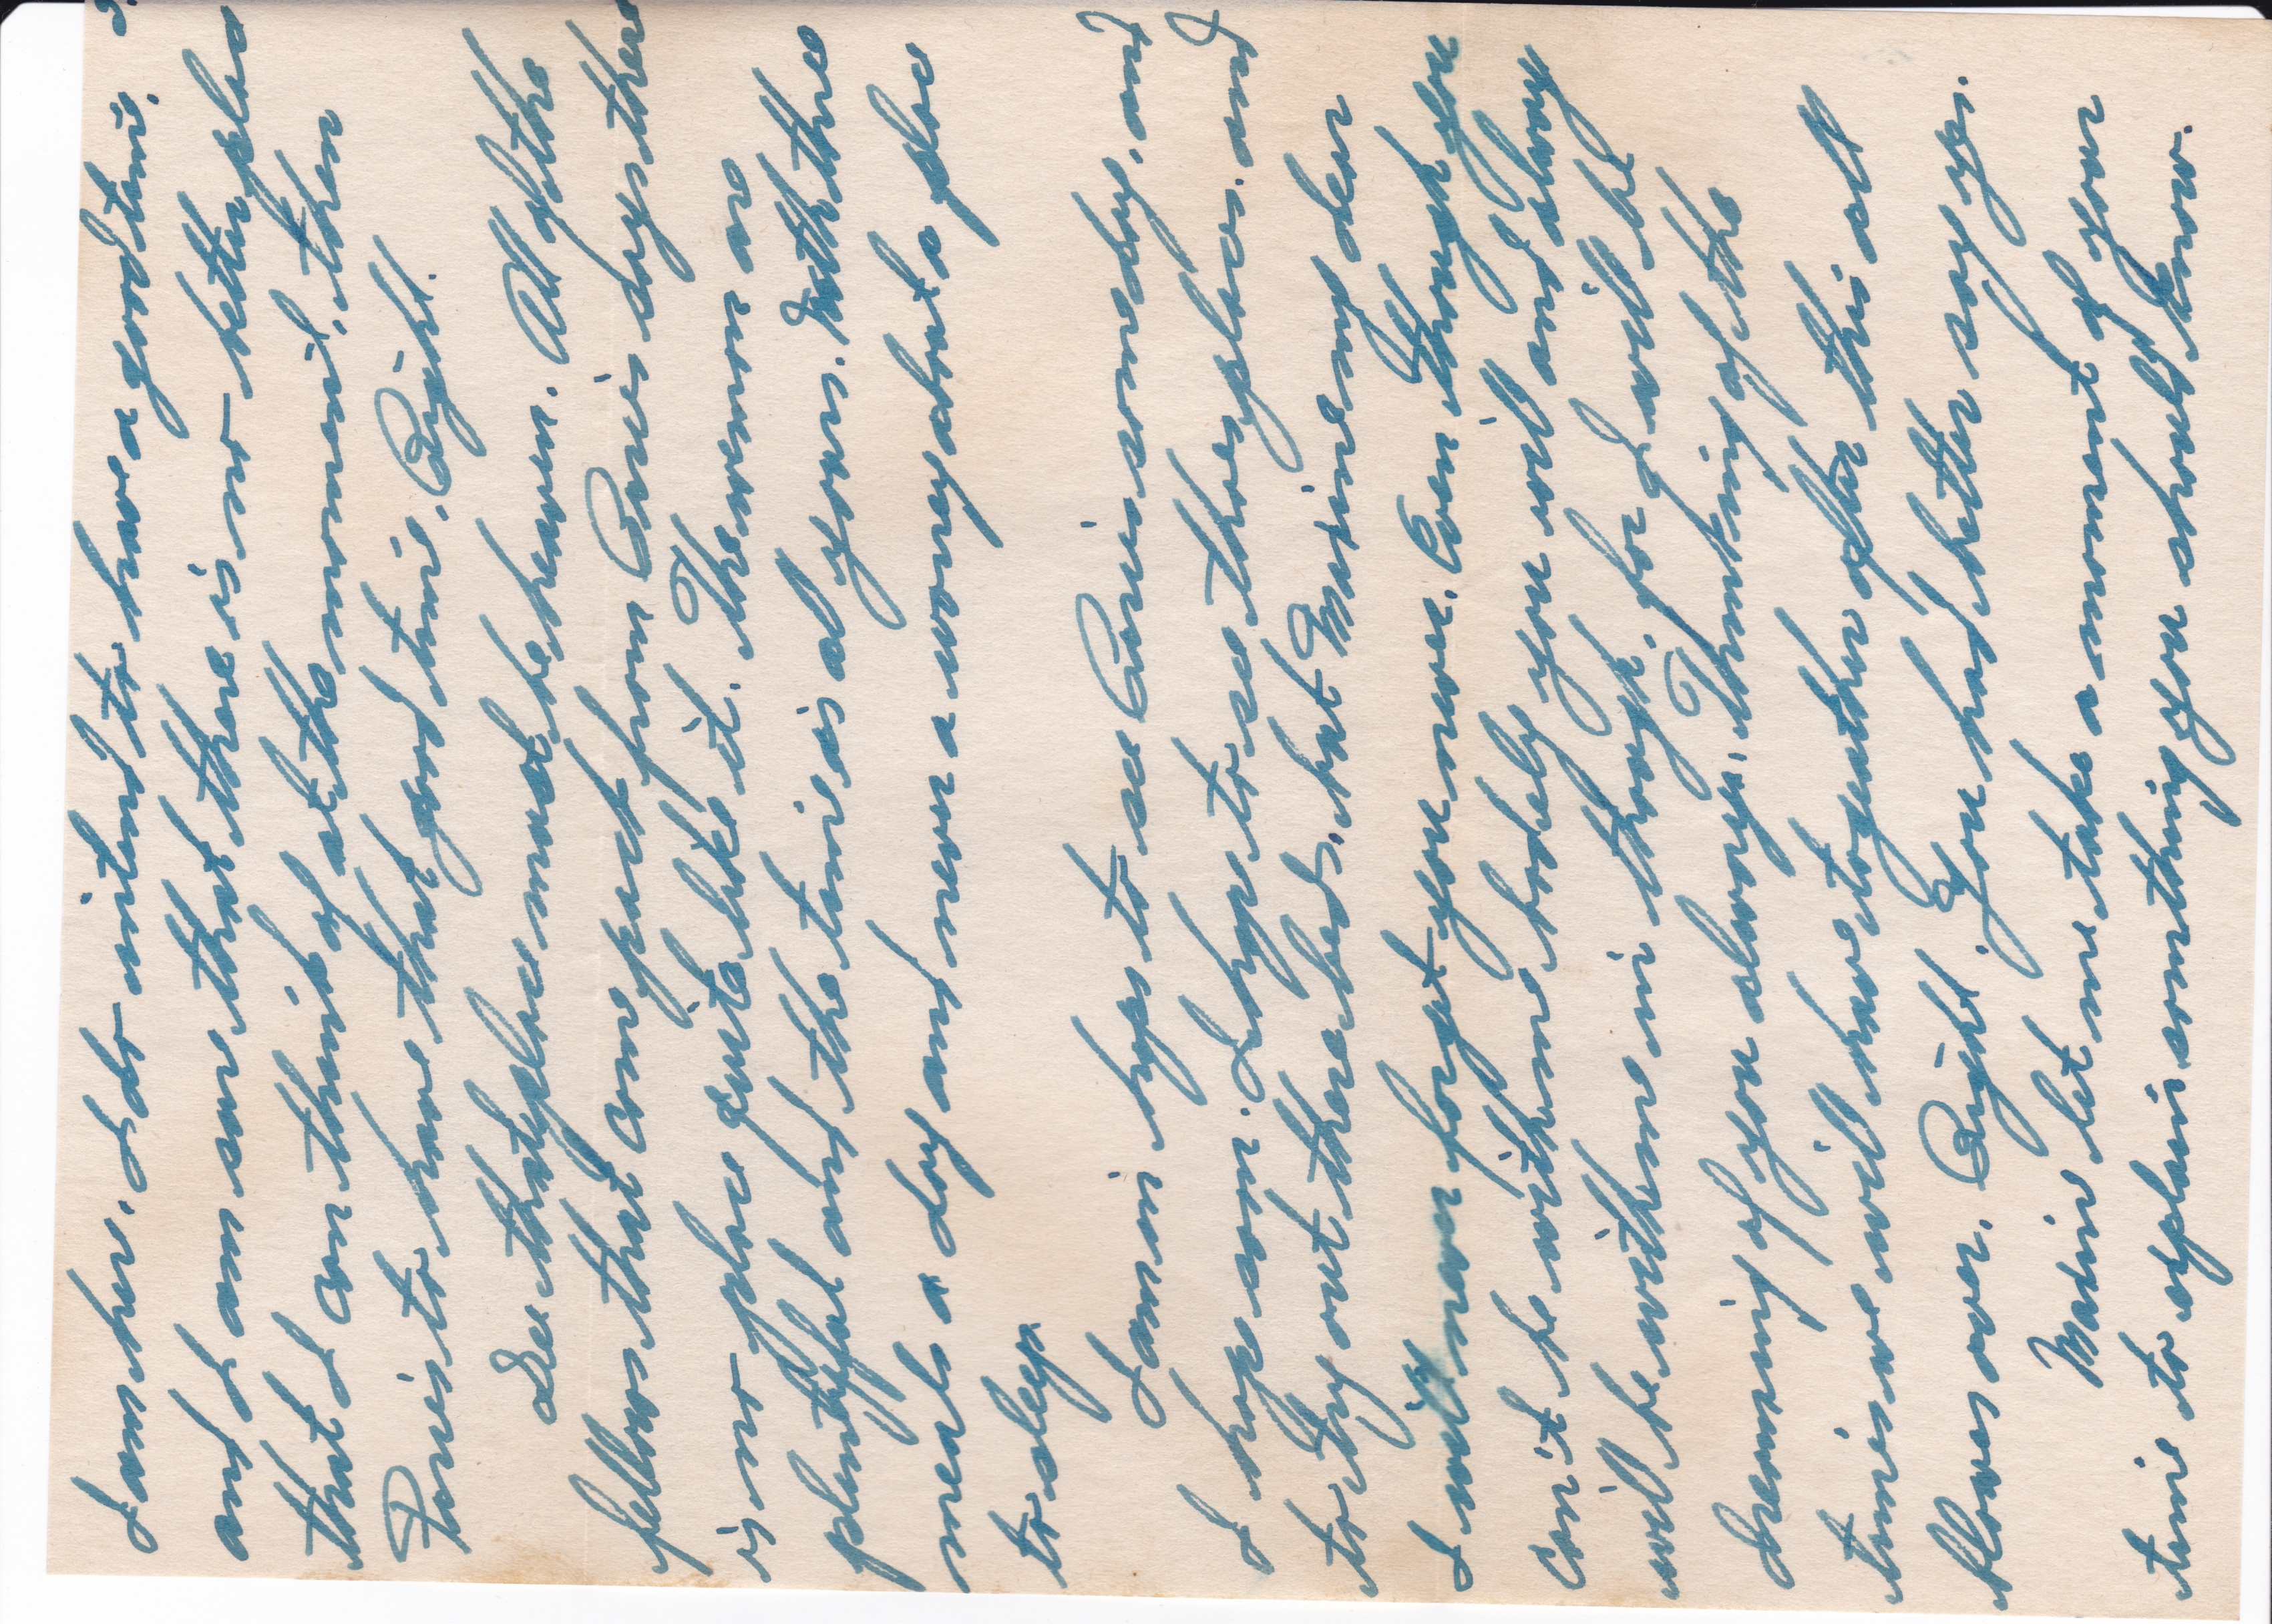 I am here. I do intend to have a good time.
and I am sure that there is no better place
that I can think of at the moment. then
Paris to have that good time. Right.
Gee that place must be heaven. All of the
fellows that come back from Paris says there
is no place quite like it. The women are
plentyful and the time is al yours. Eat three
meals a day and never a worrey about a place
to sleep.
I am in hopes to see Paris someday. and
I hope soon. I hope to see those places. and
to try out there beds. but Maxine my dear
I will never forget you never. Even though you
can't be with me bodely you will and always
will be with me in though, for I will be
dreaming of you always. Thinking of the
times we will have togeather after this all
blows over. Right. You had better say yes.
Maxine let me take a moment of your
time to explain something you should know.